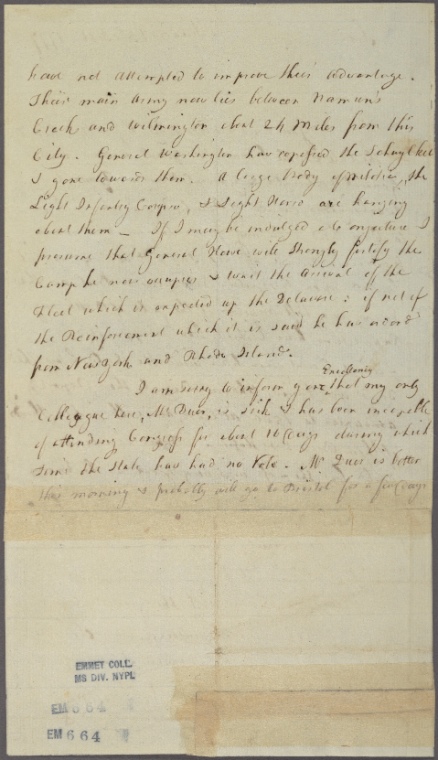 have not attempted to improve their advantage.
Their main Army now lies between Naman's
Creek and Wilmington about 24 Miles from this
City. General Washington has repassed the Schuylkill
& gone towards them. A large body of Militia, the
Light Infantry Corps, & Light Horse are hanging
about them — If I may be indulged a Conjecture I
presume that General Howe will strongly fortify the
Camp he now occupies & wait the Arrival of the
Fleet which is expected up the Delaware: if not of
the Reinforcement which it is said he has
from New York and Rhode Island.
Excellency
I am sorry to inform your that my only
Colleague here, Mr Duer, is sick & has been incapable
of attending Congress for about 10 days during which
time the State has had no Vote. Mr Duer is better
this morning & probably will go to Bristol for a few days
EMMET COLL.
MS DIV. NYPL
EM 664
EM 664